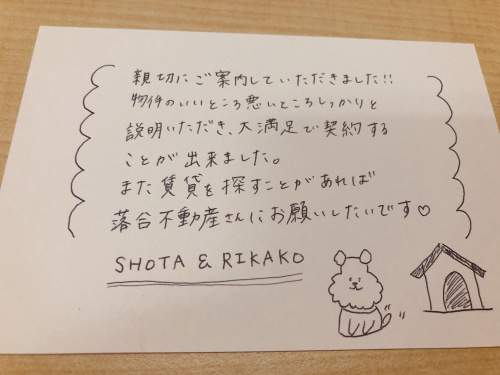 親切にご案内していただきました!!
物件のいいところ悪いところしっかりと
説明いただき、大満足で契約する
ことが出来ました。
また賃貸を探すことがあれば
落合不動産さんにお願いしたいです♡
SHOTA & RIKAKO